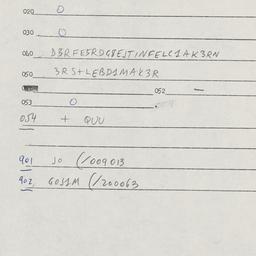 020 0
030 0
040 D3RFE5RDG8EJTINFELC1AK3RN
050 3RS+LEBD1MAK3R
052 —
053 0
054 + QUU
901 JO (/009013
902 GOS1M (/200063